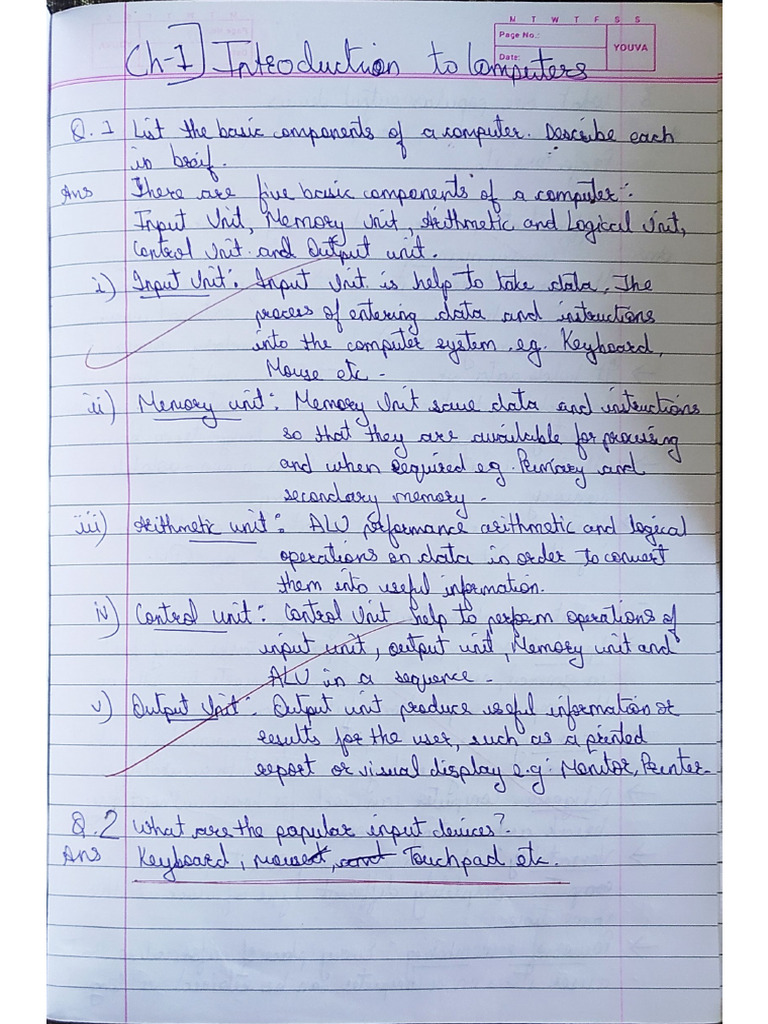 M T W T F S S
Page No.:
Date:
YOUVA
Ch-1] Introduction to Computers
Q.1 List the basic components of a computer. Describe each
in breif.
Ans There are five basic components of a computer:-
Input Unit, Memory unit, Arithmetic and Logical Unit,
Control Unit and Output unit.
i) Input Unit: Input Unit is help to take data, The
process of entering data and instructions
into the computer system e.g. Keyboard,
Mouse etc -
ii) Memory unit: Memory Unit save data and instructions
so that they are available for processing
and when required eg. Primary and
secondary memory -
iii) Arithmetic unit: ALU performance arithmetic and logical
operations on data in order to convert
them into useful information.
iv) Control unit: Control Unit help to perform operations of
input unit, output unit, Memory unit and
ALU in a sequence -
v) Output Unit: Output unit produce useful information or
results for the user, such as a printed
report or visual display e.g: Monitor, Printer-
Q.2 What are the popular input devices?
Ans Keyboard, mouse, and Touchpad etc.